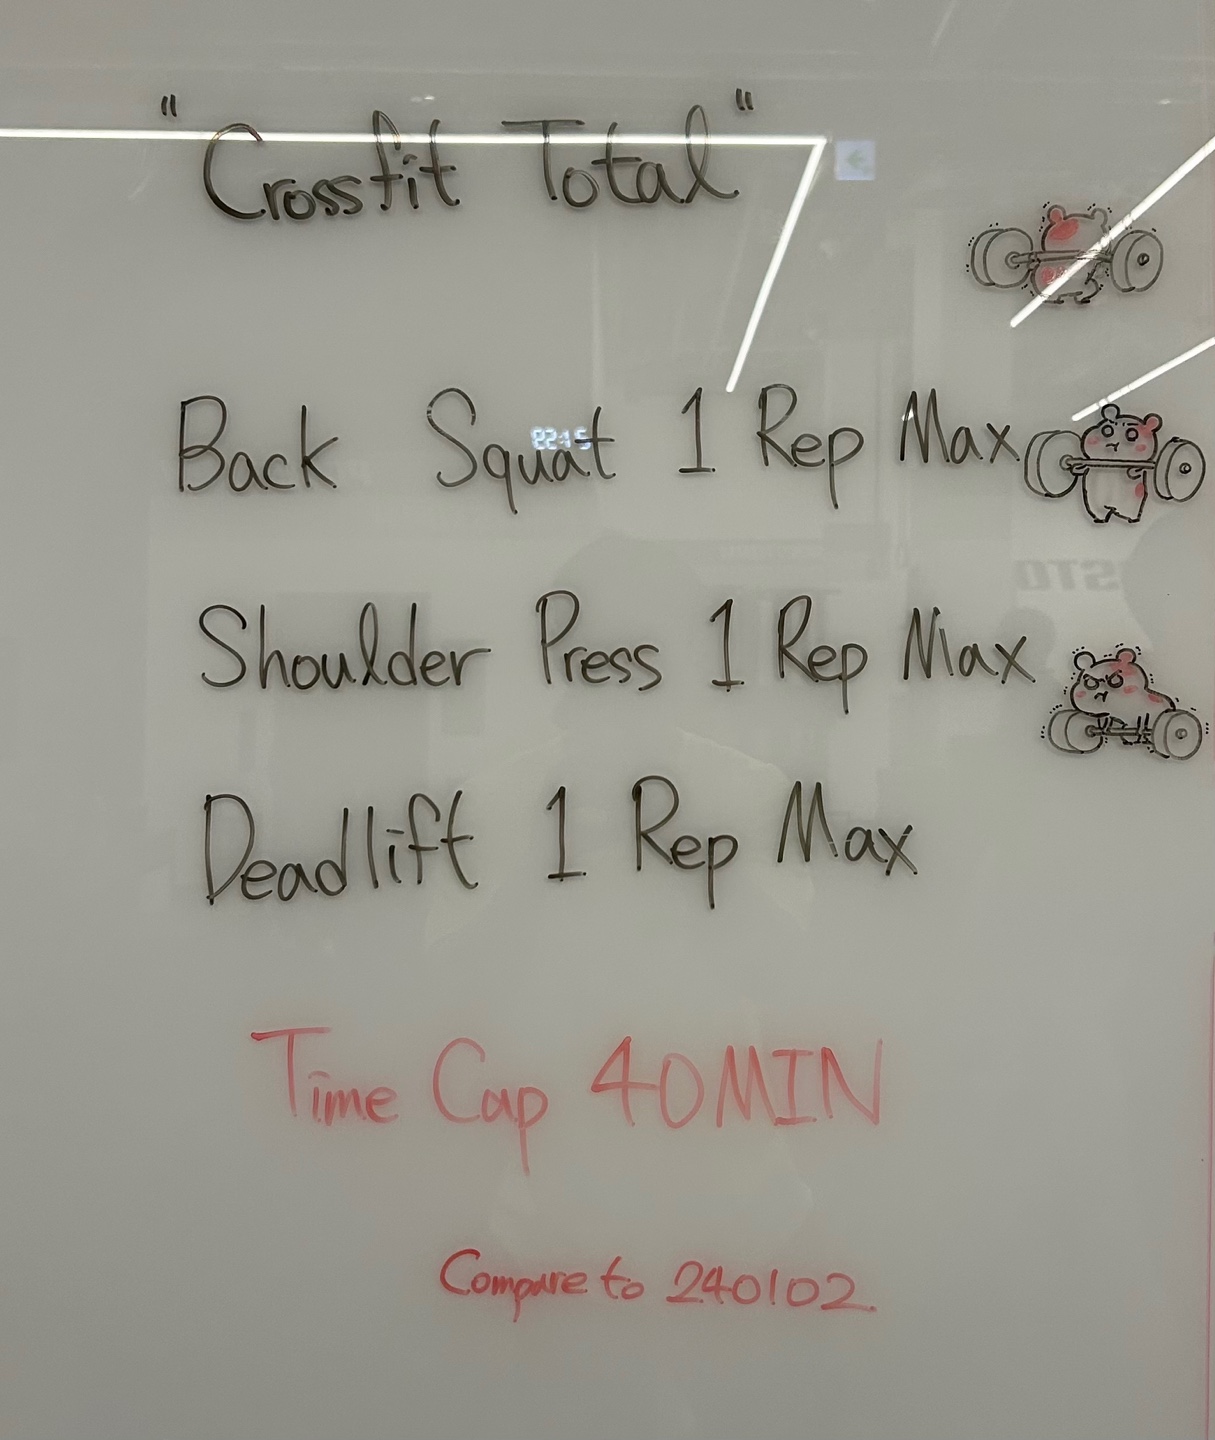 "Crossfit Total"
Back Squat 1 Rep Max
Shoulder Press 1 Rep Max
Deadlift 1 Rep Max
Time Cap 40MIN
Compare to 240102.